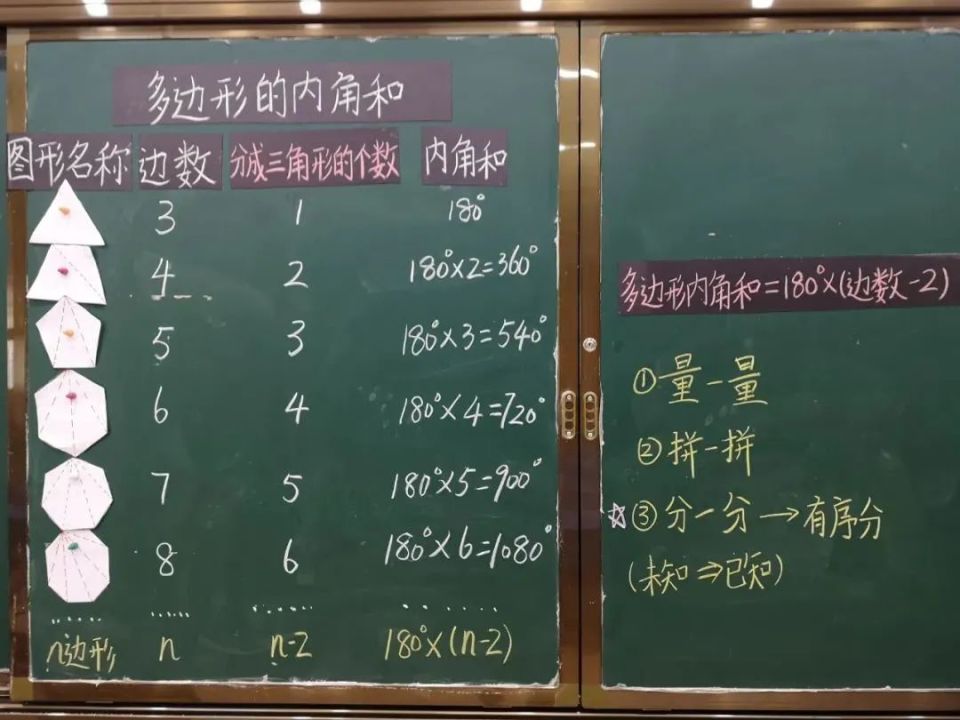 多边形的内角和
图形名称 边数 分成三角形的个数 内角和
3 1 180°
4 2 180°×2=360°
5 3 180°×3=540°
6 4 180°×4=720°
7 5 180°×5=900°
8 6 180°×6=1080°
…… …… …… ……
n边形 n n-2 180°×(n-2)
多边形内角和=180°×(边数-2)
①量一量
②拼一拼
☆③分一分→有序分
(未知⇒已知)